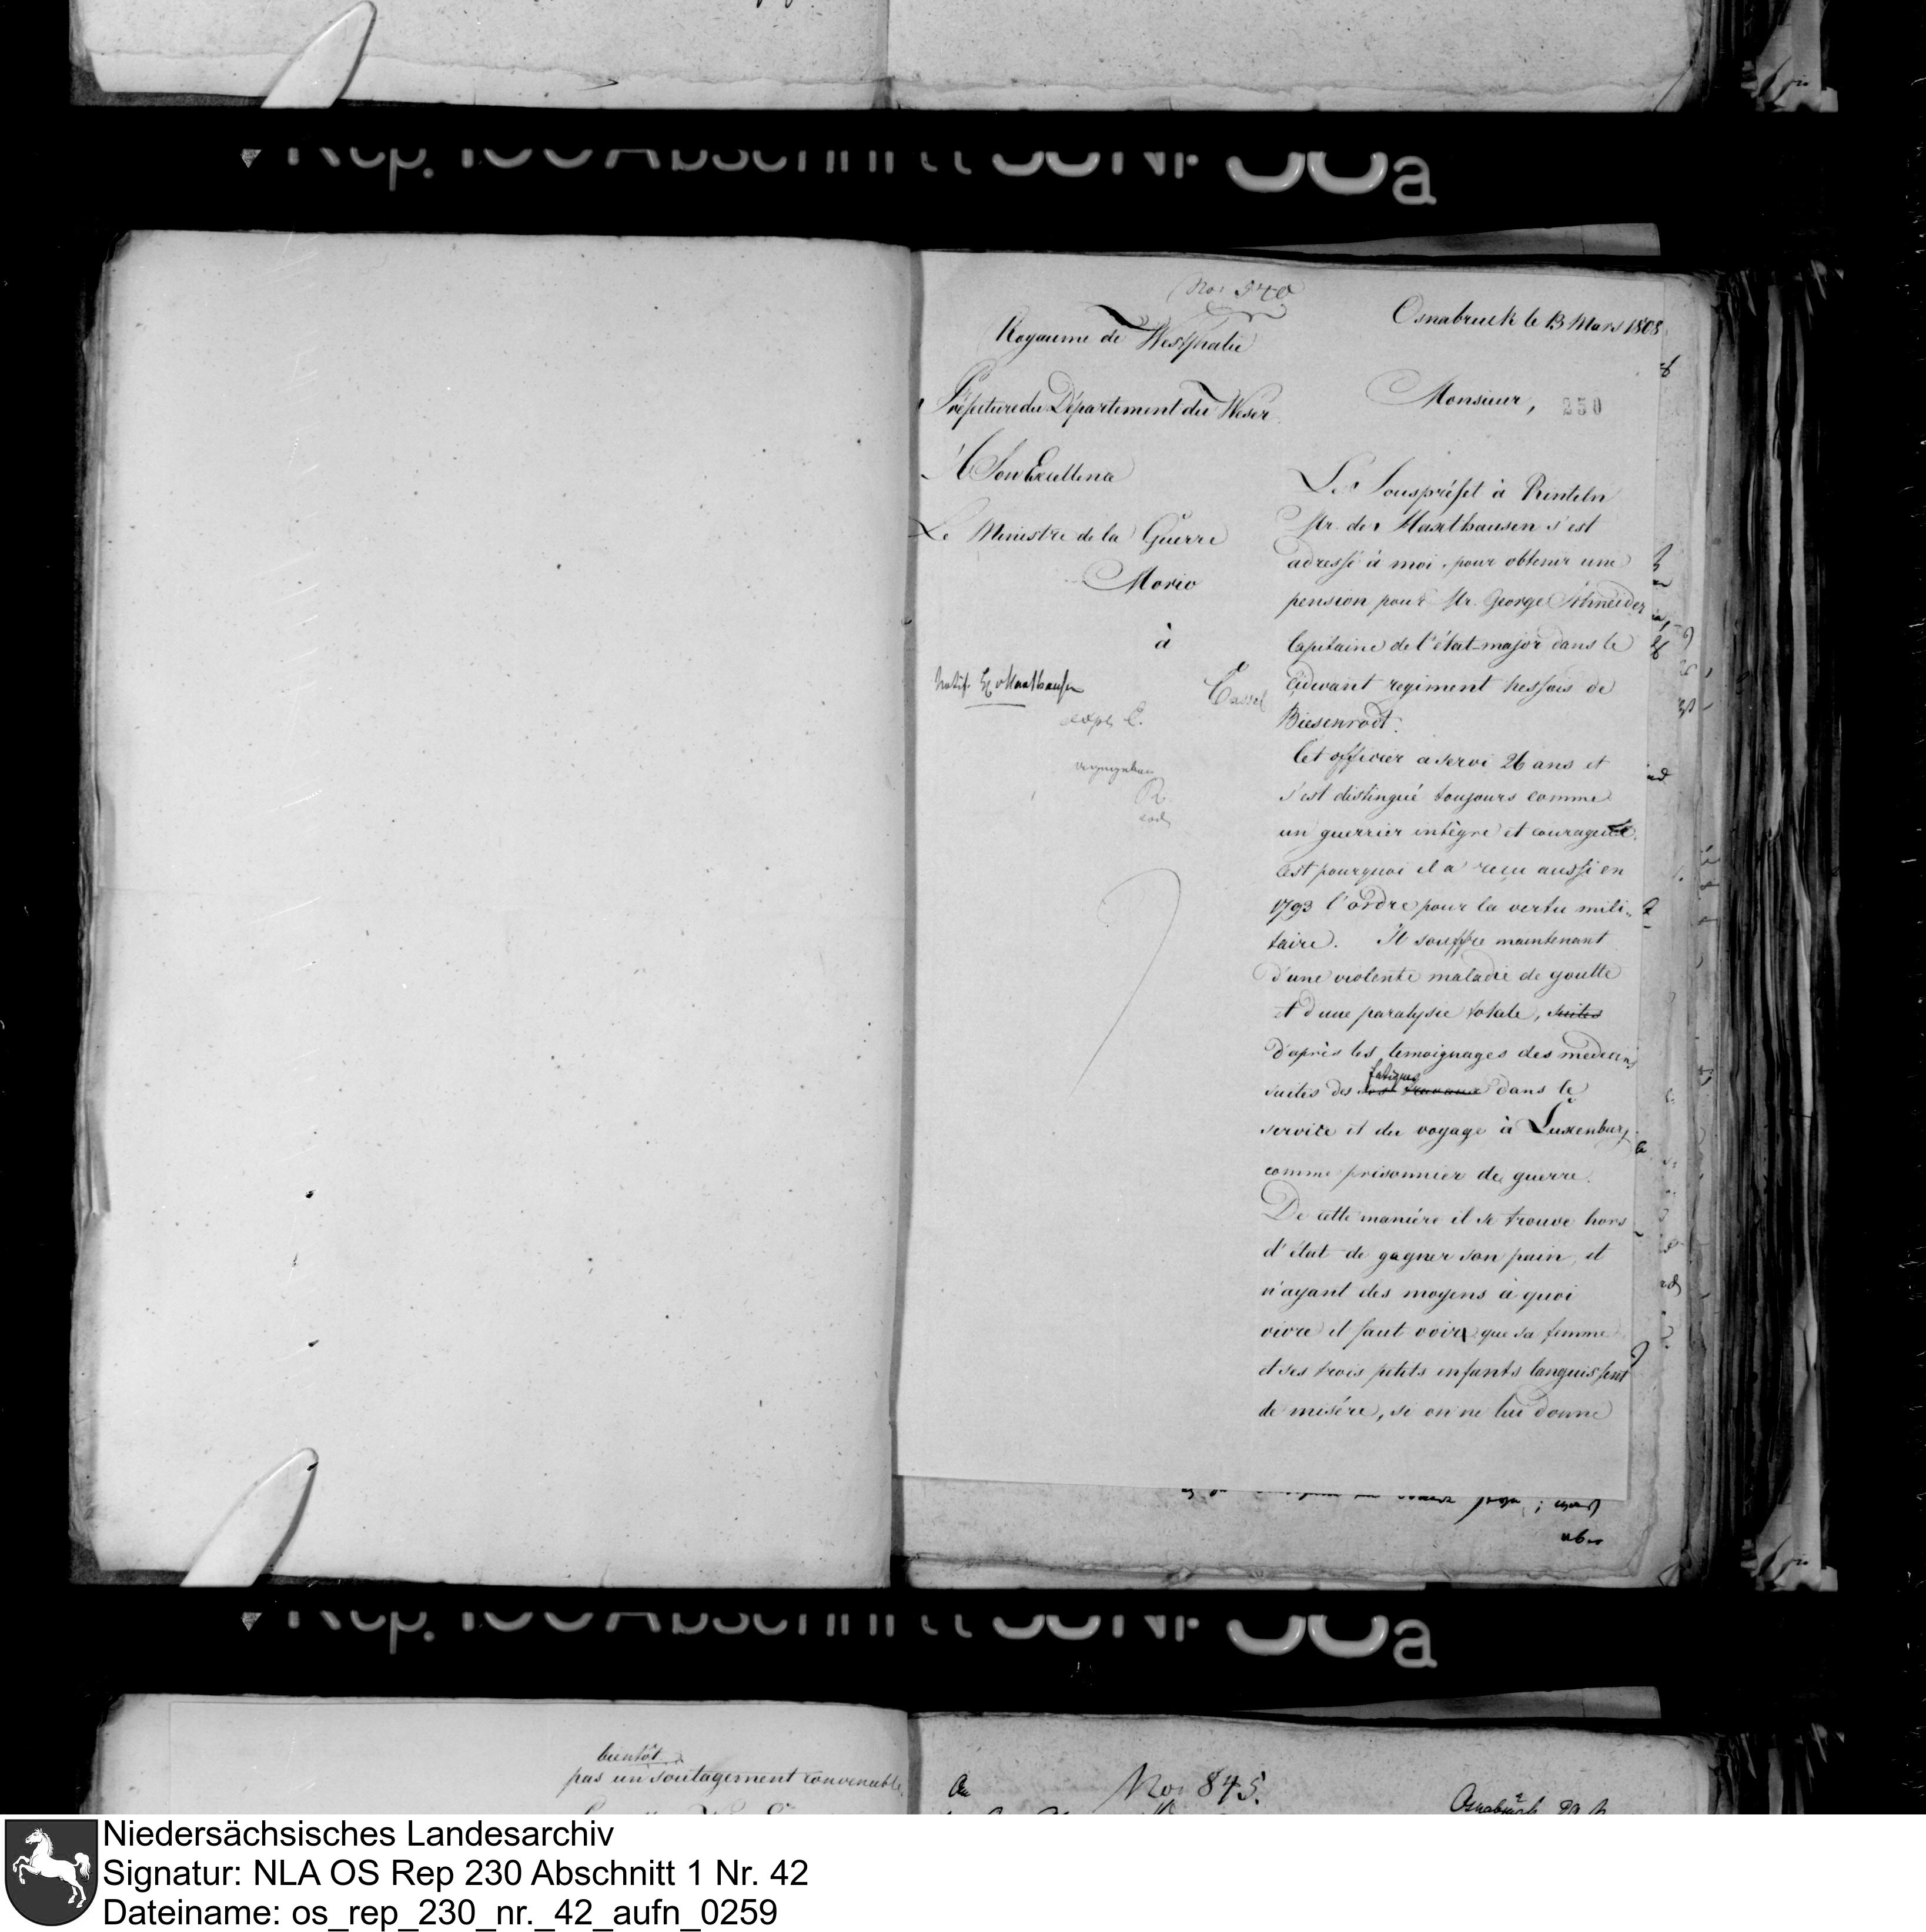 a
No. 540
Osnabruck le 13 Mars 1808
Royaume de Westphalie
Préfecture du Département du Weser.
Monsieur,
250
A Son Excellence
Le Ministre de la Guerre
Morio
à
Cassel
Le Souspréfet à Rinteln
Mr. de Haxthausen s'est
adressé à moi, pour obtenir une
pension pour Mr. George Schneider
Capitaine de l'état-major dans le
cidevant regiment hessois de
Biesenrodt.
Cet officier a servi 26 ans et
s'est distingué toujours comme
un guerrier intègre et courageux.
C'est pourquoi il a reçu aussi en
1793 l'ordre pour la vertu mili-
taire. Il souffre maintenant
d'une violente maladie de goutte
et d'une paralysie totale, suites
d'après les temoignages des medecins
fatigues
suites des travaux dans le
service et du voyage à Luxenburg
comme prisonnier de guerre.
De cette manière il se trouve hors
d'état de gagner son pain, et
n'ayant des moyens à quoi
vivre il faut voir que sa femme
et ses trois petits enfants languissent
de misére, si on ne lui donne
aber
a
bientôt
pas un soulagement convenable
An
No. 845.
Osnabrück
Niedersächsisches Landesarchiv
Signatur: NLA OS Rep 230 Abschnitt 1 Nr. 42
Dateiname: os_rep_230_nr._42_aufn_0259